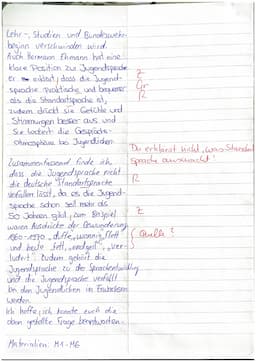 Lehr-, Studien und Bundeswehr-
beginn verschwinden wird.
Auch Hermann Ehmann hat eine
klare Position zur Jugendsprache
er erklärt, dass die Jugend-
sprache praktische und bequemer
als die Standartsprache ist,
zudem drückt sie Gefühle und
Stimmungen besser aus und
Sie lockert die Gesprächs-
Atmosphäre bei Jugendlichen.
Zusammenfassend finde ich,
dass die Jugendsprache nicht
die deutsche Standartsprache
verfallen lässt, da es die Jugend-
sprache schon seit mehr als
50 Jahren gibt, zum Beispiel
waren Ausdrücke der Bewunderung
1960-1970 „dufte, wonnig, flott"
und heute „fett, endgeil",
Zudem gehört die
Jugendsprache zu der Sprachentwicklung
und die Jugendsprache verfällt
bei den Jugendlichen im Erwachsen
werden.
Ich hoffe, ich konnte euch die
oben gestellte Frage beantworten.
Materialien: M1-M6
Z
Gr
R
Du erklärst nicht, was Standard
sprache ausmacht!
R
Z
Quelle?